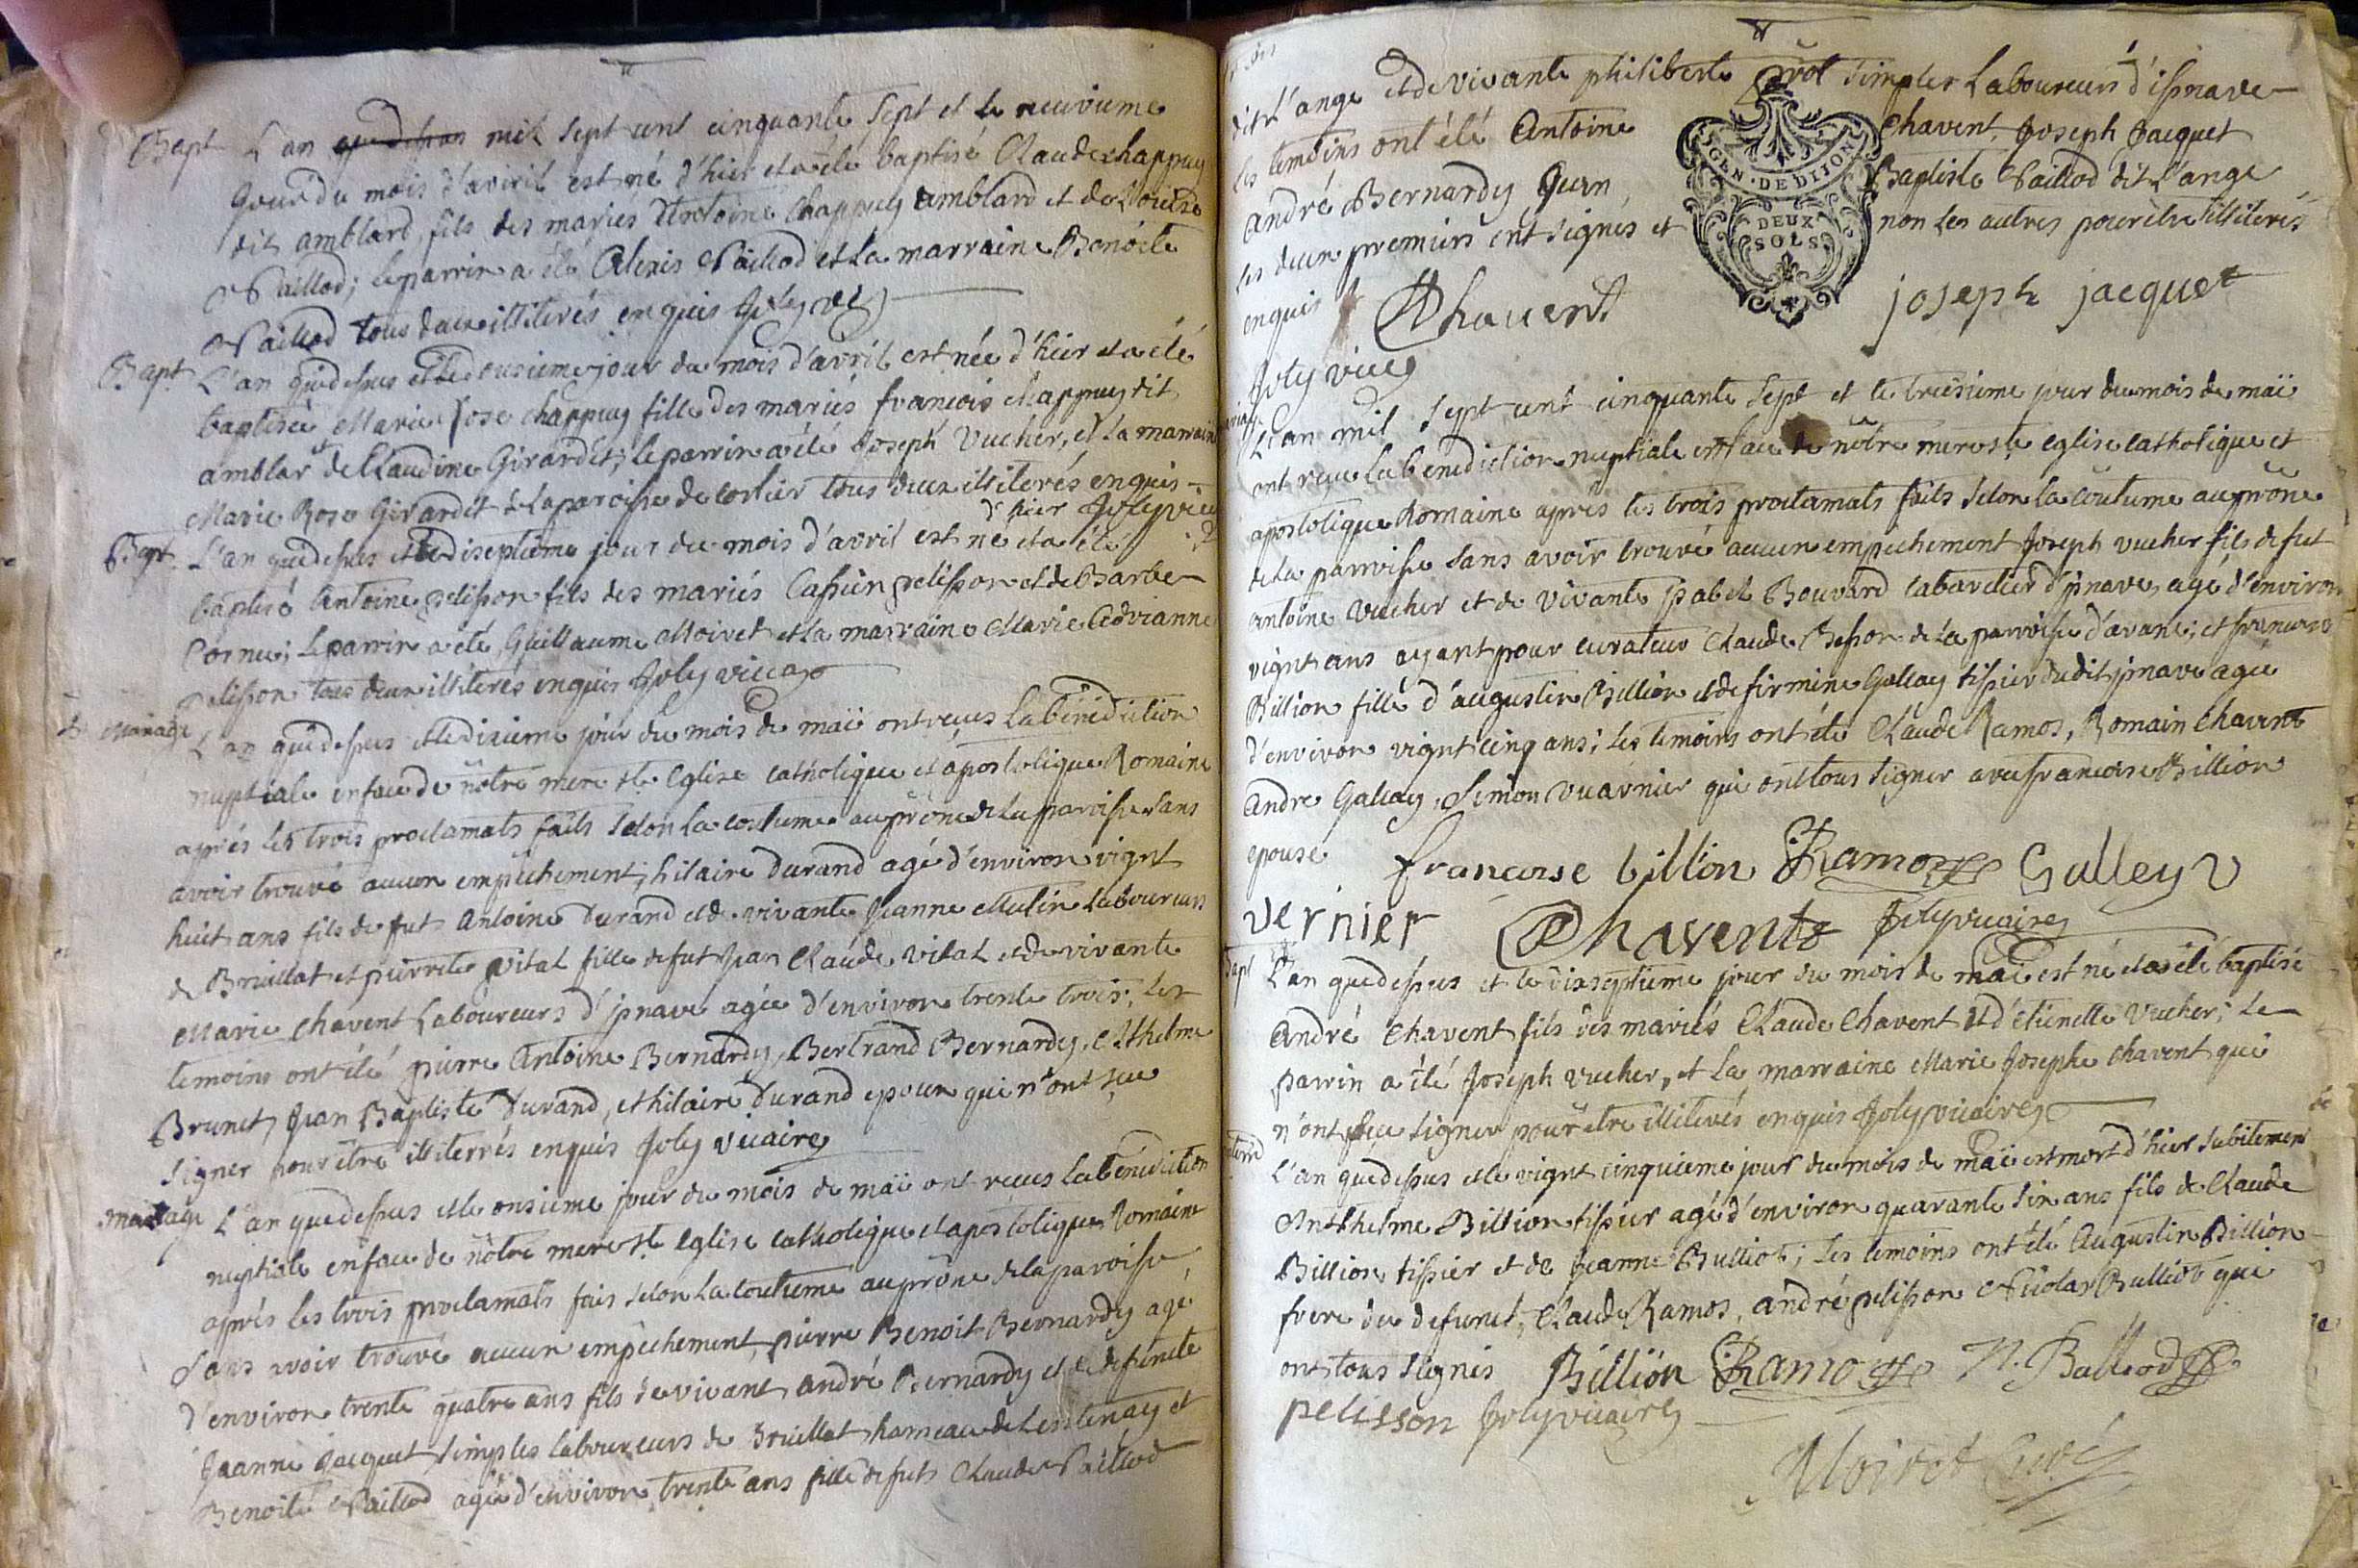 Bapt L'an quedessus mil sept cent cinquante sept et le neuvieme
jour du mois d'avril est né d'hier et a été baptisé Claude chappuy
dit amblard fils des mariés Antoine Chappuy amblard et de Louise
Paillod; le parrin a été Alexis Paillod et la marraine Benoite
Paillod tous deux illiterés enquis Joly
Bapt L'an quedessus et le jour du mois d'avril est née d'hier et a été
baptisée Marie Rose chappuy fille des mariés francois chappuy dit
amblar et de Claudine Girardit; le parrin a été Joseph Vucher, et la marraine
Marie Rose Girardit de la paroisse de tous deux illiterés enquis
d'hier Joly vic
Bapt L'an quedessus et le diseptieme jour du mois d'avril est né et a été
baptisé Antoine pelisson fils des mariés Cassien pelisson et de Barbe
Cornu; le parrin a été Guillaume Moiret et la marraine Marie Adrianne
Pelisson tous deux illiterés enquis Joly vicaire
Mariage L'an quedessus et le disieme jour du mois de maï ont receus la bénédiction
nuptiale en face de nôtre mere ste Eglise catholique et apostolique Romaine
aprés les trois proclamats faits selon la coutume au prône de la paroisse sans
avoir trouvé aucun empêchement; hilaire Durand agé d'environ vignt
huit ans fils de fut Antoine Durand et de vivante Jeanne Mulin laboureurs
de Bruillat et pierrette vital fille de fut Jean Claude vital et de vivante
Marie Chavent Laboureurs d'jsnave agée d'environ trente trois; les
temoins ont été pierre Antoine Bernardy, Bertrand Bernardy, Anthelme
Brunet, Jean Baptiste Durand, et hilaire Durand epoux qui n'ont sceu
signer pour être illiterrés enquis Joly vicaire
mariage L'an quedessus et le onsieme jour du mois de maï ont receus la bénédiction
nuptiale en face de nôtre mere ste Eglise catholique et apostolique Romaine
aprés les trois proclamats fais selon la coutume au prône de la paroisse,
sans avoir trouvé aucun empêchement, pierre Benoit Bernardy agé
d'environ trente quatre ans fils de vivant andré Bernardy et de defuncte
Jeanne Jacquet simples laboureurs de Bruillat hameau de Lentenay et
Benoite Paillod agée d'environ trente ans fille de fut Claude Paillod
dit L'ange et de vivante philiberte simples Laboureurs d'isnave
les temoins ont été Antoine Chavent, Joseph Jacquet
André Bernardy Jean Baptiste Paillod dit L'ange
les deux premiers ont signés et non les autres pour etre illiterés
enquis Chavent joseph jacquet
Joly vicaire
GEN. DE DIJON
DEUX
SOLS
L'an mil sept cent cinquante sept et le treisieme jour du mois de maï
ont receu la benediction nuptiale en face de nôtre mere ste eglise catholique et
apostolique Romaine aprés les trois proclamats faits selon la coûtume au prône
de la parroisse sans avoir trouvé aucun empechement Joseph vucher fils de fut
antoine Vucher et de vivante jsabel Bouvard cabaretier d'jsnave, agé d'environ
vignt ans ayant pour curateur Claude Besson de la parroisse d'avane; et francoise
Billion fille d'augustin Billion et de firmine Gallay tissier dudit jsnave agée
d'environ vignt cinq ans; les temoins ont été Claude Ramos, Romain Chavent
André Gallay, Simon vuarnier qui ont tous signer avec francoise Billion
epouse francoise billion Ramos Galley
vernier Chavent Joly vicaire
Bapt L'an quedessus et le dixseptieme jour du mois de maï est né et a été baptisé
André Chavent fils des mariés Claude Chavent et d'étienette Vucher; le
parrin a été Joseph vucher, et la marraine Marie Josephe Chavent qui
n'ont sceu signer pour être illiterés enquis Joly vicaire
L'an quedessus et le vignt cinquieme jour du mois de maï est mort d'hier subitement
Anthelme Billion tissier agé d'environ quarante six ans fils de Claude
Billion tissier et de Jeanne Bulliod; les temoins ont été Augustin Billion
frere du defunct, Claude Ramos, andré pelisson Nicolas Bulliod qui
ont tous signés Billion Ramos N. Bulliod
pelisson Joly vicaire
Moiret Curé